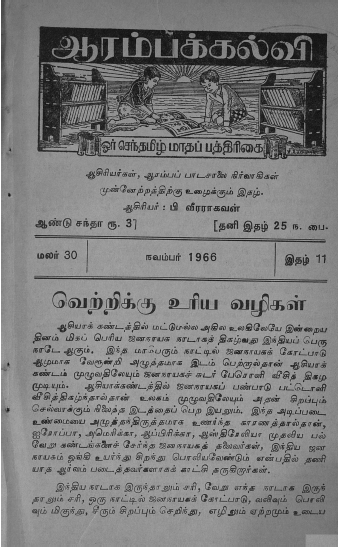 ஆரம்பக்கல்வி
ஓர் செந்தமிழ் மாதப் பத்திரிகை
ஆசிரியர்கள், ஆரம்பப் பாடசாலை நிர்வாகிகள்
முன்னேற்றத்திற்கு உழைக்கும் இதழ்.
ஆசிரியர் : பி வீரராகவன்
ஆண்டு சந்தா ரூ. 3] [தனி இதழ் 25 ந. பை.
மலர் 30 நவம்பர் 1966 இதழ் 11
வெற்றிக்கு உரிய வழிகள்
ஆசியாக் கண்டத்தில் மட்டுமல்ல அகில உலகிலேயே இன்றைய
தினம் மிகப் பெரிய ஜனநாயக நாடாகத் திகழ்வது இந்தியப் பெரு
நாடே ஆகும். இந்த மாபெரும் நாட்டில் ஜனநாயகக் கோட்பாடு
ஆழமாக வேரூன்றி அழுத்தமாக இடம் பெற்றால்தான் ஆசியாக்
கண்டம் முழுவதிலேயும் ஜனநாயகச் சுடர் பேரொளி வீசித் திகழ
முடியும். ஆசியாக்கண்டத்தில் ஜனநாயகப் பண்பாடு பட்டொளி
வீசித்திகழ்ந்தால்தான் உலகம் முழுவதிலேயும் அதன் சிறப்பும்
செல்வாக்கும் நிலைத்த இடத்தைப் பெற இயலும். இந்த அடிப்படை
உண்மையை அழுத்தந்திருத்தமாக உணர்ந்த காரணத்தால்தான்,
ஐரோப்பா, அமெரிக்கா, ஆப்பிரிக்கா, ஆஸ்திரேலியா முதலிய பல்
வேறு கண்டங்களைச் சேர்ந்த ஜனநாயகத் தலைவர்கள், இந்திய ஜன
நாயகம் ஓங்கி உயர்ந்து சிறந்து பொலியவேண்டும் என்பதில் தணி
யாத ஆர்வம் படைத்தவர்களாகக் காட்சி தருகிறார்கள்.
இந்திய நாடாக இருந்தாலும் சரி, வேறு எந்த நாடாக இருந்
தாலும் சரி, ஒரு நாட்டில் ஜனநாயகக் கோட்பாடு, வலிவும் பொலி
வும் மிகுந்து, சீரும் சிறப்பும் செறிந்து, எழிலும் ஏற்றமும் உடைய